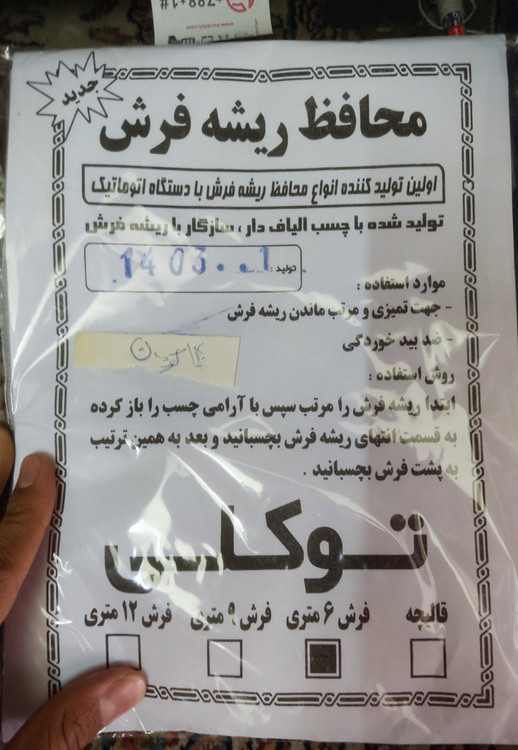 جدید
محافظ ریشه فرش
اولین تولید کننده انواع محافظ ریشه فرش با دستگاه اتوماتیک
تولید شده با چسب الیاف دار ، سازگار با ریشه فرش
تولید : 1403..1
موارد استفاده :
- جهت تمیزی و مرتب ماندن ریشه فرش
- ضد بید خوردگی
روش استفاده :
ابتدا ریشه فرش را مرتب سپس با آرامی چسب را باز کرده
به قسمت انتهای ریشه فرش بچسبانید و بعد به همین ترتیب
به پشت فرش بچسبانید .
توکلی
قالیچه فرش ۶ متری فرش ۹ متری فرش ۱۲ متری